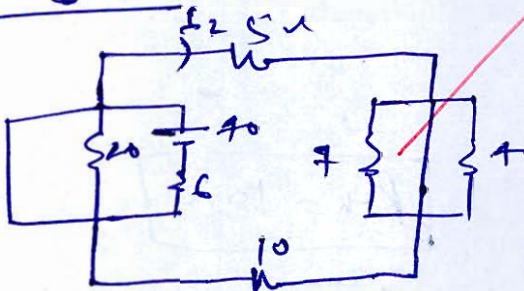 I2 5Ω
20
40
6
7
4
10